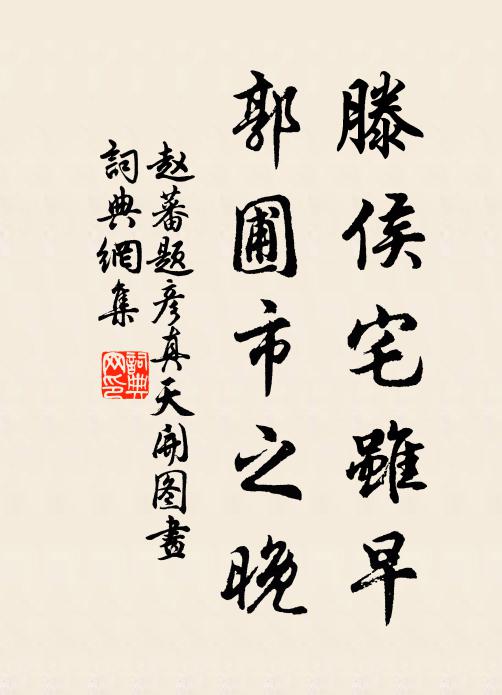 滕侯宅雖早
郭圃市之晚
赵蕃题彦真天開图畫
詞典網集
詞典网印